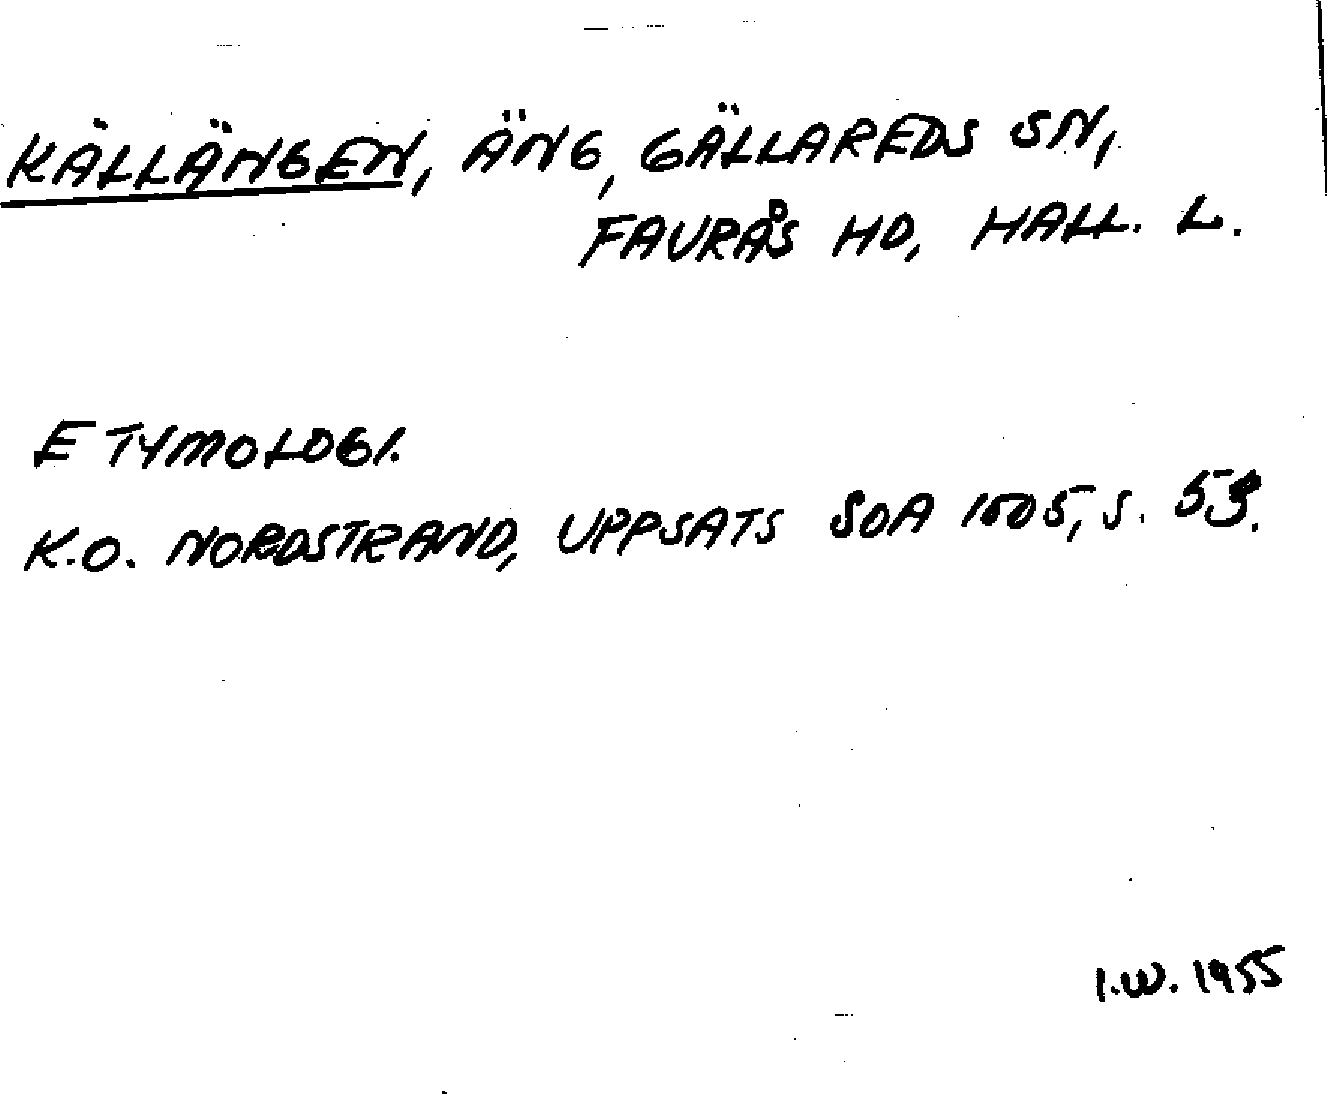 KÄLLÄNGEN, ÄNG, GÄLLAREDS SN,
FAURÅS HD, HALL. L.
ETYMOLOGI.
K.O. NORDSTRAND, UPPSATS SOA 1505, S. 59.
I.W. 1955